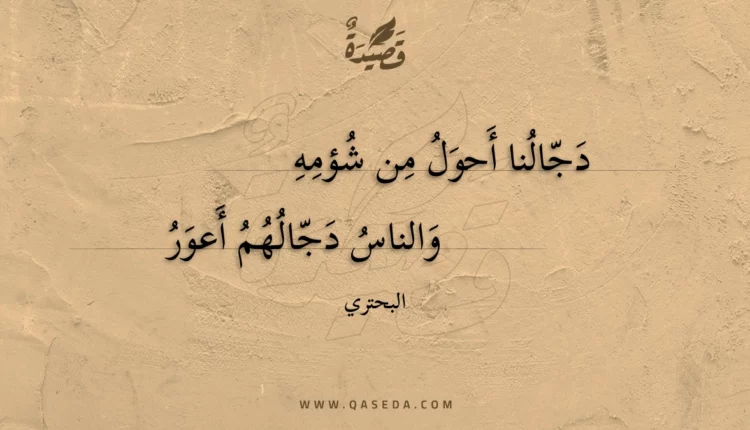 قَصِيدَةٌ
دَجّالُنا أَحوَلُ مِن شُؤمِهِ
وَالناسُ دَجّالُهُمُ أَعوَرُ
البحتري
WWW.QASEDA.COM